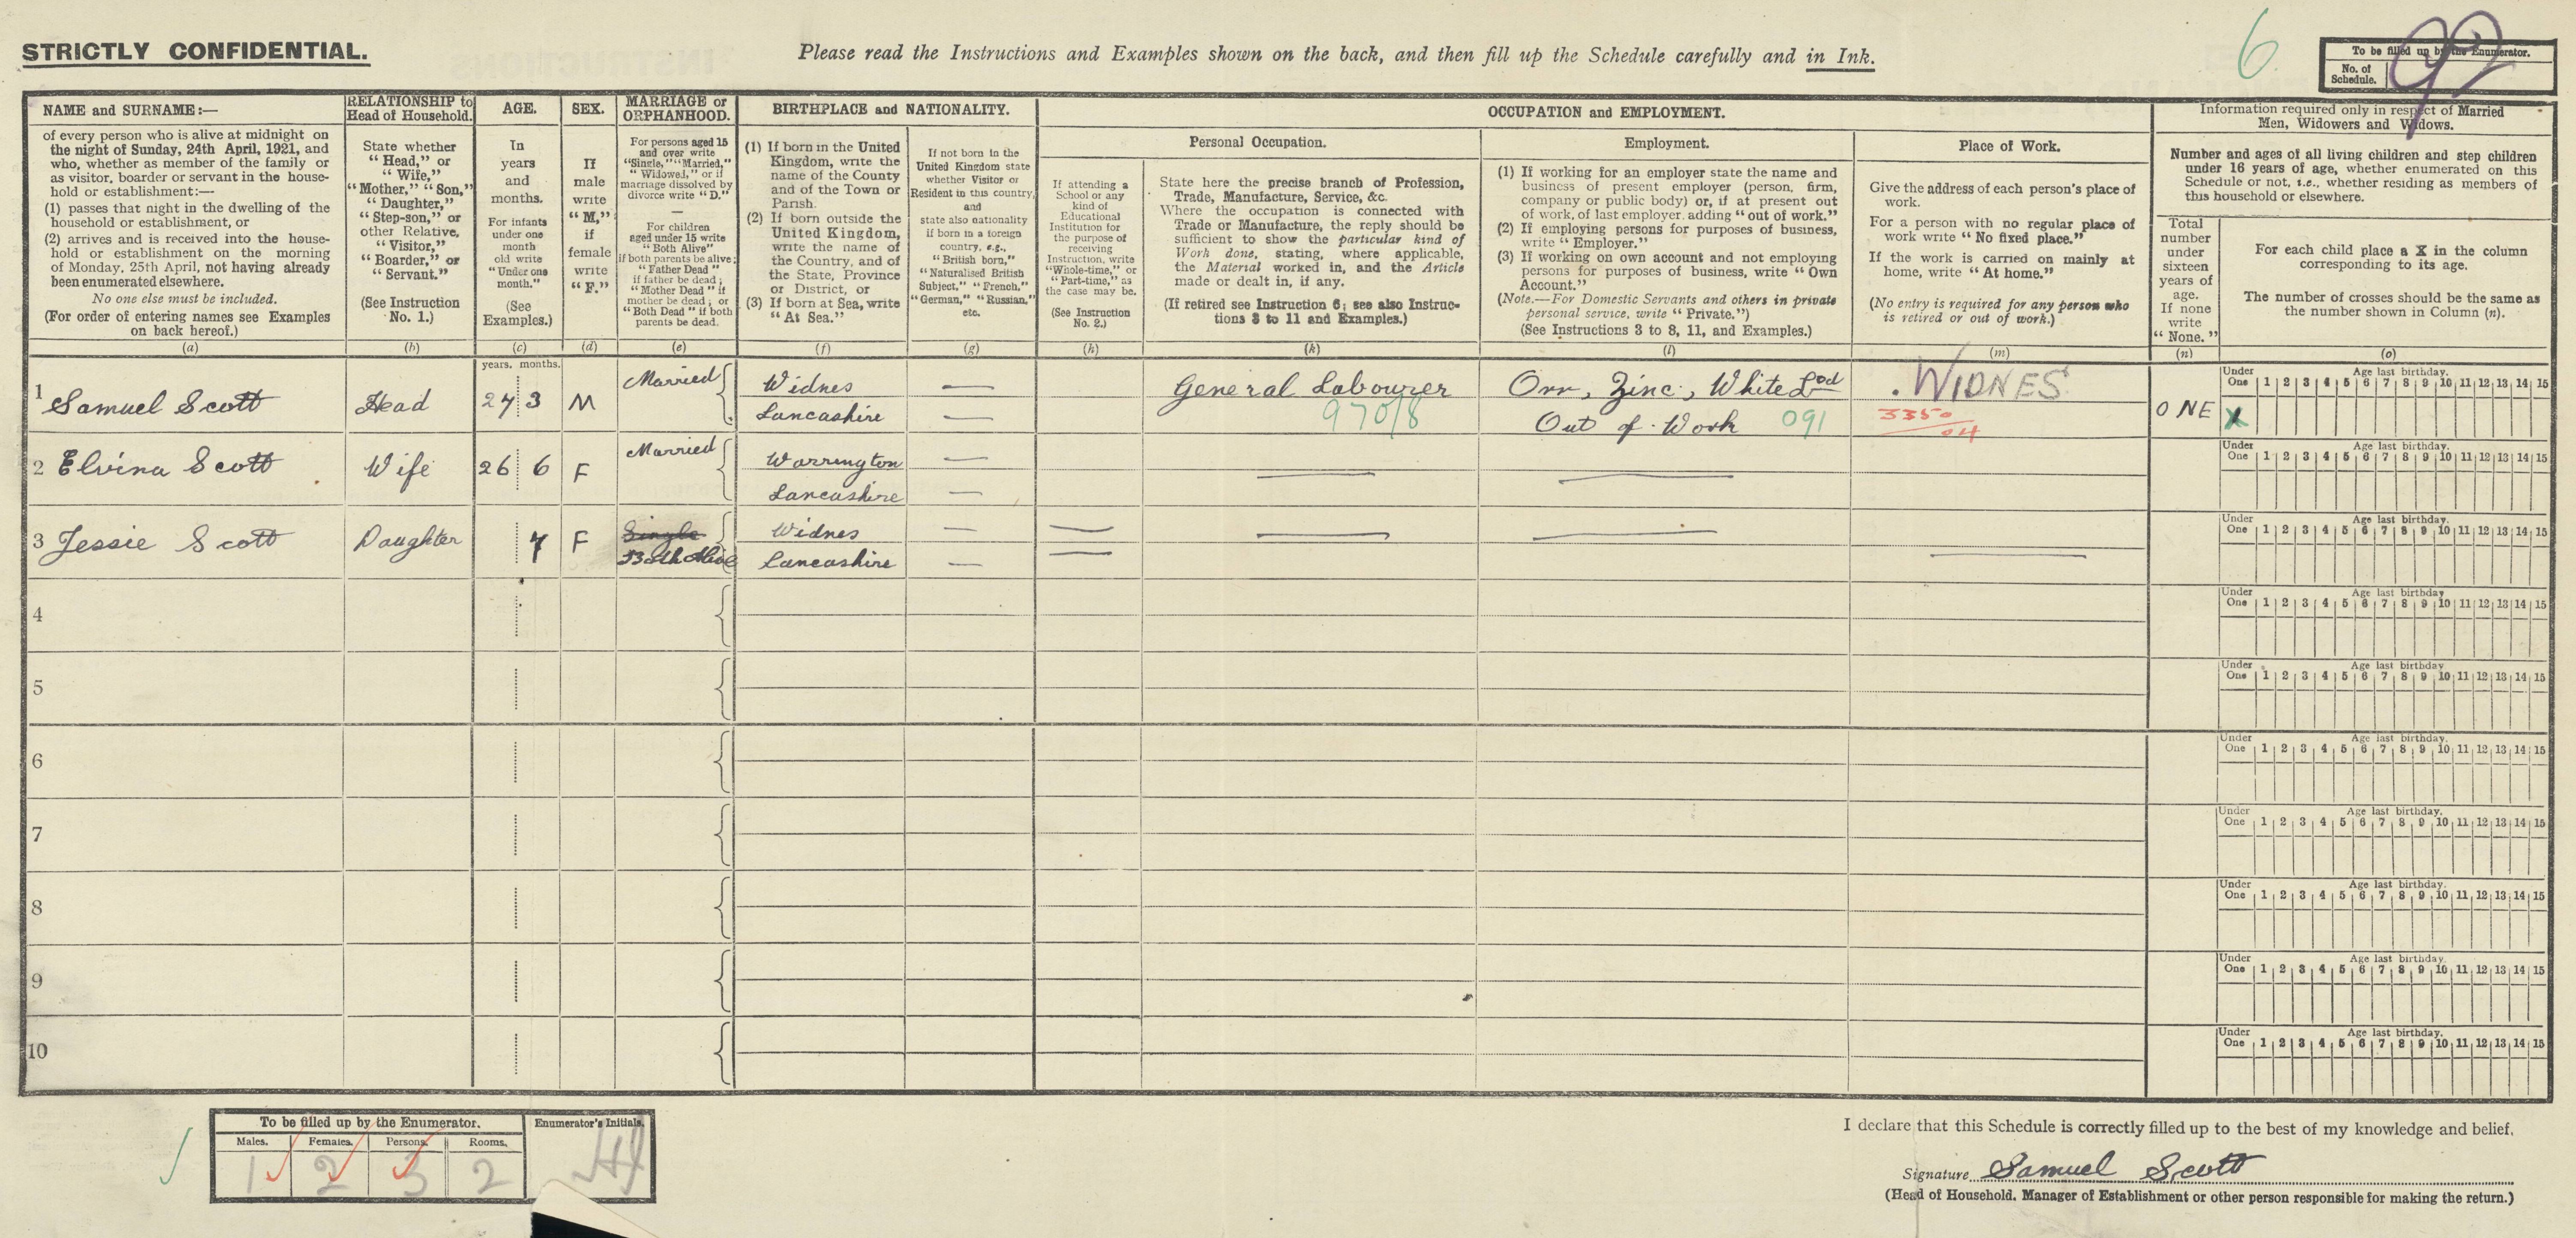 STRICTLY CONFIDENTIAL.
Please read the Instructions and Examples shown on the back, and then fill up the Schedule carefully and in Ink.
6
To be filled up by the Enumerator.
No. of Schedule.
92
NAME and SURNAME:—
of every person who is alive at midnight on
the night of Sunday, 24th April, 1921, and
who, whether as member of the family or
as visitor, boarder or servant in the house-
hold or establishment:—
(1) passes that night in the dwelling of the
household or establishment, or
(2) arrives and is received into the house-
hold or establishment on the morning
of Monday, 25th April, not having already
been enumerated elsewhere.
No one else must be included.
(For order of entering names see Examples
on back hereof.)
(a)
RELATIONSHIP to
Head of Household.
State whether
"Head," or
"Wife,"
"Mother," "Son,"
"Daughter,"
"Step-son," or
other Relative,
"Visitor,"
"Boarder," or
"Servant."
(See Instruction
No. 1.)
(b)
AGE.
In
years
and
months.
For infants
under one
month
old write
"Under one
month."
(See
Examples.)
(c)
SEX.
If
male
write
"M,"
if
female
write
"F."
(d)
MARRIAGE or
ORPHANHOOD.
For persons aged 15
and over write
"Single," "Married,"
"Widowed," or if
marriage dissolved by
divorce write "D."
—
For children
aged under 15 write
"Both Alive"
if both parents be alive;
"Father Dead"
if father be dead;
"Mother Dead" if
mother be dead; or
"Both Dead" if both
parents be dead.
(e)
BIRTHPLACE and NATIONALITY.
(1) If born in the United
Kingdom, write the
name of the County
and of the Town or
Parish.
(2) If born outside the
United Kingdom,
write the name of
the Country, and of
the State, Province
or District, or
(3) If born at Sea, write
"At Sea."
(f)
If not born in the
United Kingdom state
whether Visitor or
Resident in this country,
and
state also nationality
if born in a foreign
country, e.g.,
"British born,"
"Naturalised British
Subject," "French,"
"German," "Russian,"
etc.
(g)
OCCUPATION and EMPLOYMENT.
Personal Occupation.
If attending a
School or any
kind of
Educational
Institution for
the purpose of
receiving
Instruction, write
"Whole-time," or
"Part-time," as
the case may be.
(See Instruction
No. 2.)
(h)
State here the precise branch of Profession,
Trade, Manufacture, Service, &c.
Where the occupation is connected with
Trade or Manufacture, the reply should be
sufficient to show the particular kind of
Work done, stating, where applicable,
the Material worked in, and the Article
made or dealt in, if any.
(If retired see Instruction 6; see also Instruc-
tions 3 to 11 and Examples.)
(k)
Employment.
(1) If working for an employer state the name and
business of present employer (person, firm,
company or public body) or, if at present out
of work, of last employer, adding "out of work."
(2) If employing persons for purposes of business,
write "Employer."
(3) If working on own account and not employing
persons for purposes of business, write "Own
Account."
(Note.—For Domestic Servants and others in private
personal service, write "Private.")
(See Instructions 3 to 8, 11, and Examples.)
(l)
Place of Work.
Give the address of each person's place of
work.
For a person with no regular place of
work write "No fixed place."
If the work is carried on mainly at
home, write "At home."
(No entry is required for any person who
is retired or out of work.)
(m)
Information required only in respect of Married
Men, Widowers and Widows.
Number and ages of all living children and step children
under 16 years of age, whether enumerated on this
Schedule or not, i.e., whether residing as members of
this household or elsewhere.
Total
number
under
sixteen
years of
age.
If none
write
"None."
(n)
For each child place a X in the column
corresponding to its age.
The number of crosses should be the same as
the number shown in Column (n).
(o)
years. months.
1 Samuel Scott Head 27 3 M Married Widnes — General Labourer Orr, Zinc, White Lᵗᵈ WIDNES
Lancashire — 970/8 Out of Work 091 3350/04 ONE X
Under One Age last birthday. 1 2 3 4 5 6 7 8 9 10 11 12 13 14 15
2 Elvina Scott Wife 26 6 F Married Warrington —
Lancashire —
Under One Age last birthday. 1 2 3 4 5 6 7 8 9 10 11 12 13 14 15
3 Jessie Scott Daughter 7 F Single Widnes —
Both Alive Lancashire —
Under One Age last birthday. 1 2 3 4 5 6 7 8 9 10 11 12 13 14 15
4
Under One Age last birthday 1 2 3 4 5 6 7 8 9 10 11 12 13 14 15
5
Under One Age last birthday 1 2 3 4 5 6 7 8 9 10 11 12 13 14 15
6
Under One Age last birthday. 1 2 3 4 5 6 7 8 9 10 11 12 13 14 15
7
Under One Age last birthday. 1 2 3 4 5 6 7 8 9 10 11 12 13 14 15
8
Under One Age last birthday. 1 2 3 4 5 6 7 8 9 10 11 12 13 14 15
9
Under One Age last birthday. 1 2 3 4 5 6 7 8 9 10 11 12 13 14 15
10
Under One Age last birthday. 1 2 3 4 5 6 7 8 9 10 11 12 13 14 15
To be filled up by the Enumerator.
Males. Females. Persons. Rooms.
1 2 3 2
Enumerator's Initials.
I declare that this Schedule is correctly filled up to the best of my knowledge and belief.
Signature Samuel Scott
(Head of Household, Manager of Establishment or other person responsible for making the return.)